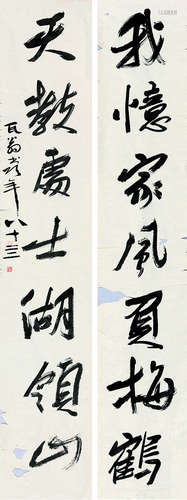 我憶家風負梅鶴
天教處士湖領山
瓦翁書年八十三